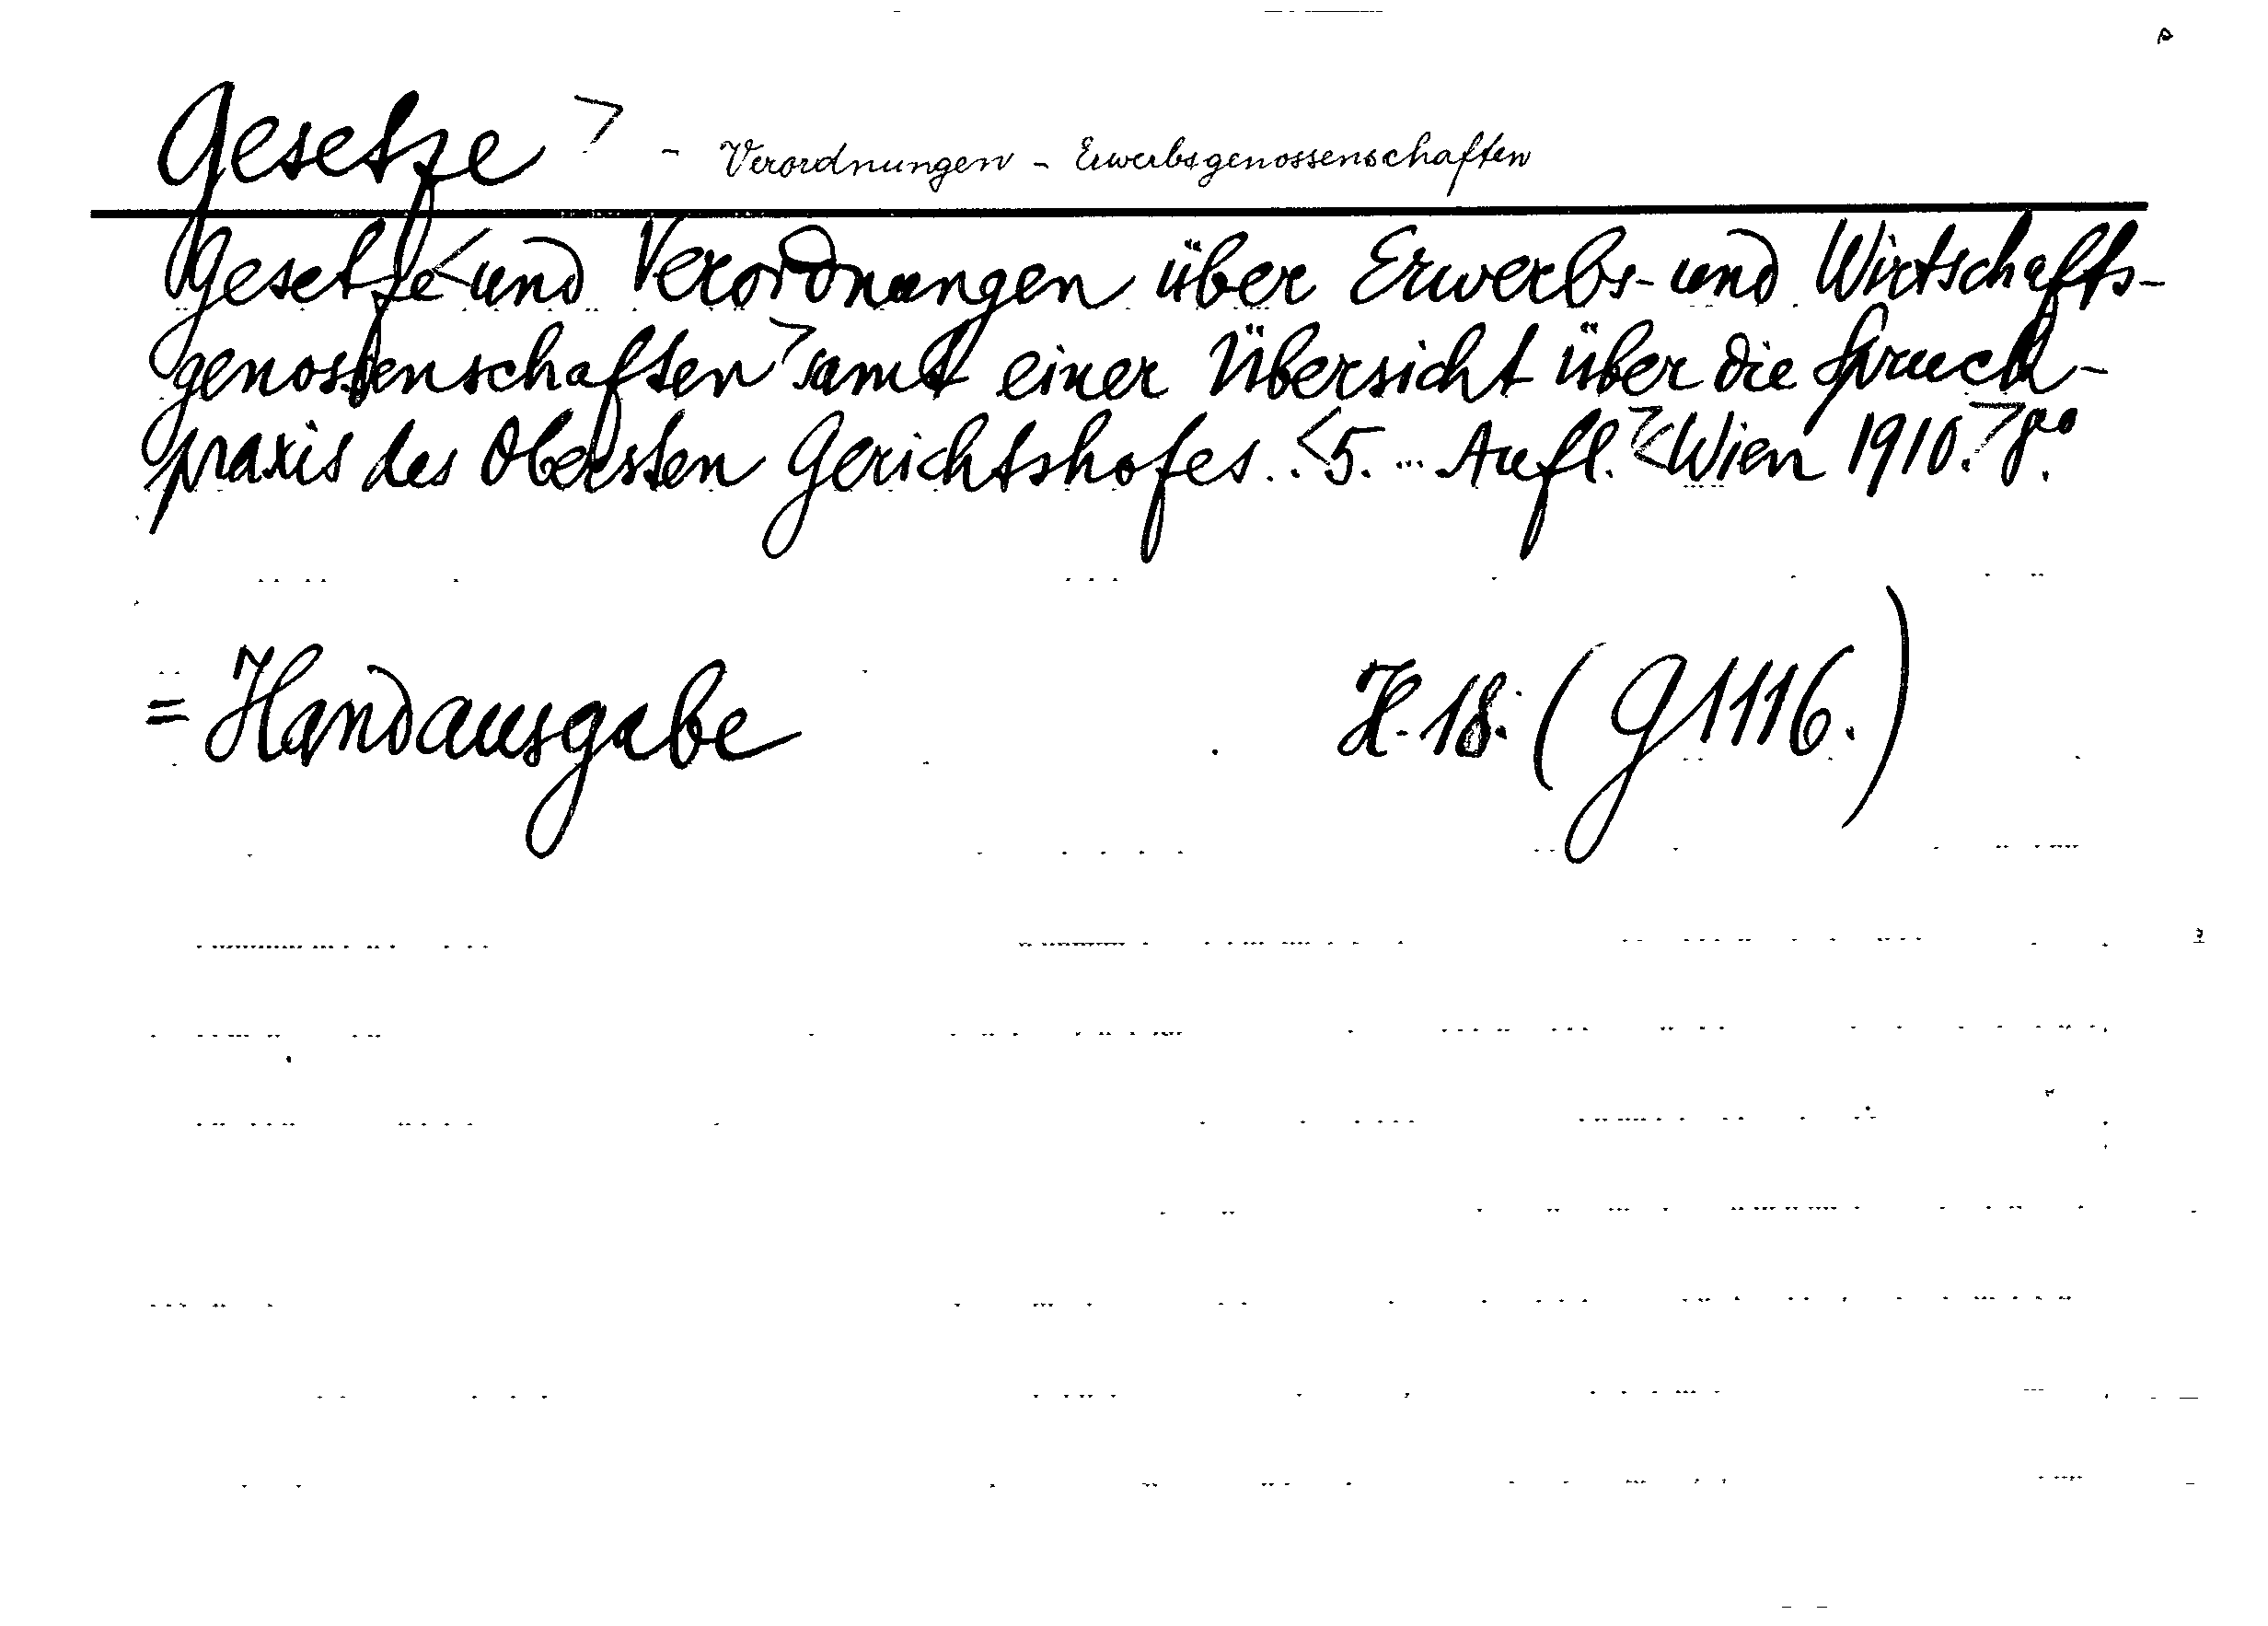 Gesetze> - Verordnungen - Erwerbsgenossenschaften
Gesetze<und Verordnungen über Erwerbs- und Wirtschafts-
genossenschaften>samt einer Übersicht über die Spruch-
praxis des Obersten Gerichtshofes. <5. ... Aufl.><Wien 1910.>8°.
= Handausgabe H. 18. (G 1116.)